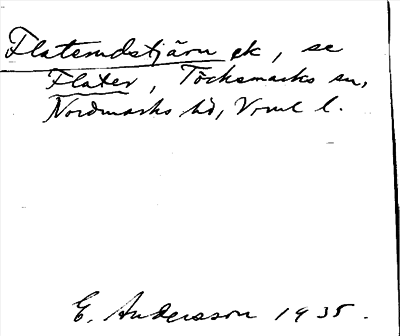 Flatsrudstjärn ek, se
Flaten, Töcksmarks sn,
Nordmarks hd, Vrml l.
E. Andersson 1935.